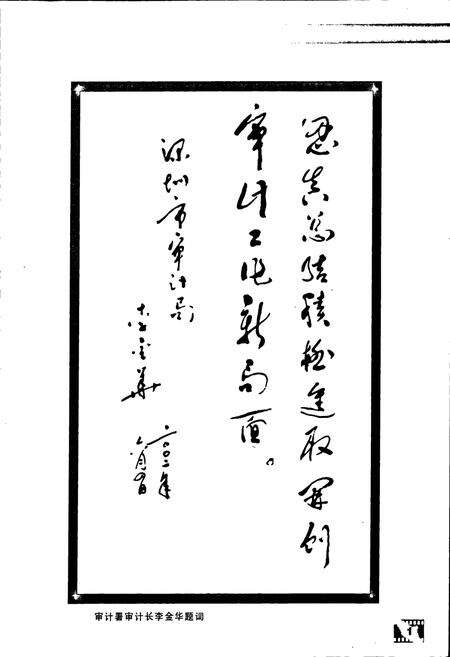 认真总结积极进取开创
审计工作新局面。
深圳市审计局
李金华
二〇〇二年
六月
审计署审计长李金华题词
1